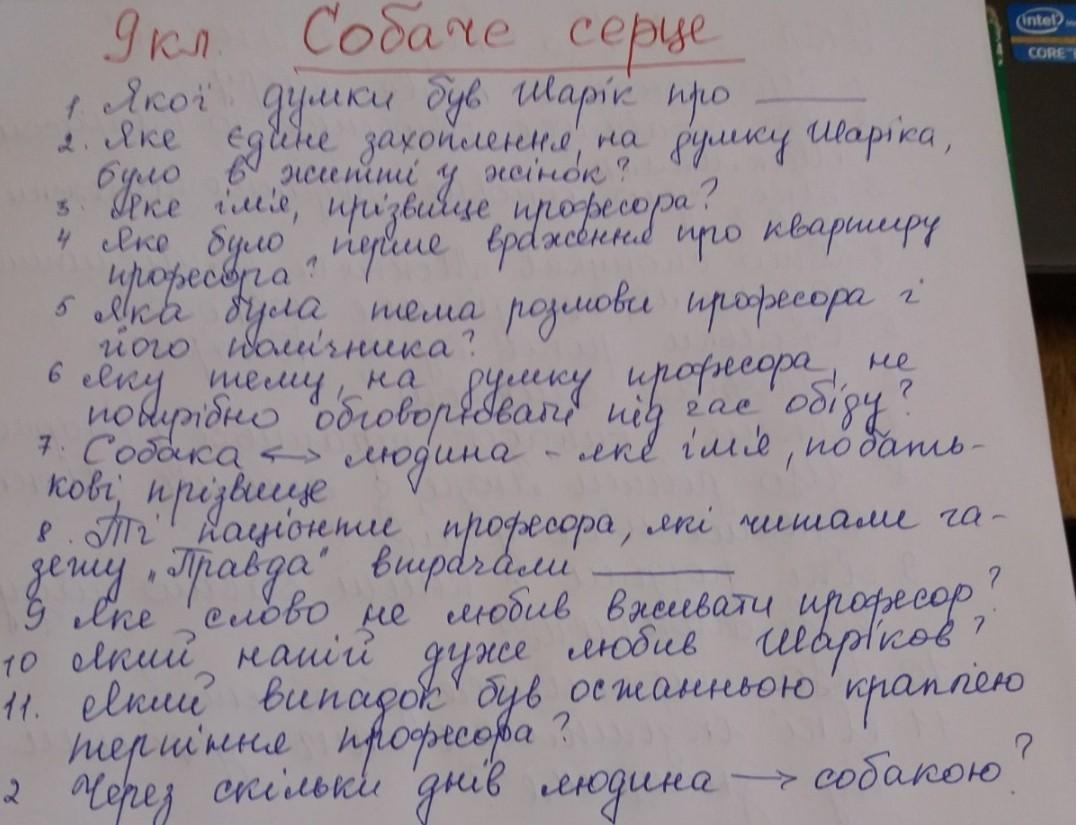 9кл. Собаче серце
1. Якої думки був Шарік про ______
2. Яке єдине захоплення, на думку Шаріка,
було в житті у жінок?
3. Яке ім'я, прізвище професора?
4 Яке було перше враження про квартиру
професора?
5 Яка була тема розмови професора і
його помічника?
6 Яку тему, на думку професора, не
потрібно обговорювати під час обіду?
7. Собака ↔ людина - яке ім'я, по бать-
кові, прізвище
8. Ті пацієнти професора, які читали га-
зету „Правда" втрачали ______
9 Яке слово не любив вживати професор?
10 Який напій дуже любив Шаріков?
11. Який випадок був останньою краплею
терпіння професора?
2 Через скільки днів людина → собакою?
intel
CORE